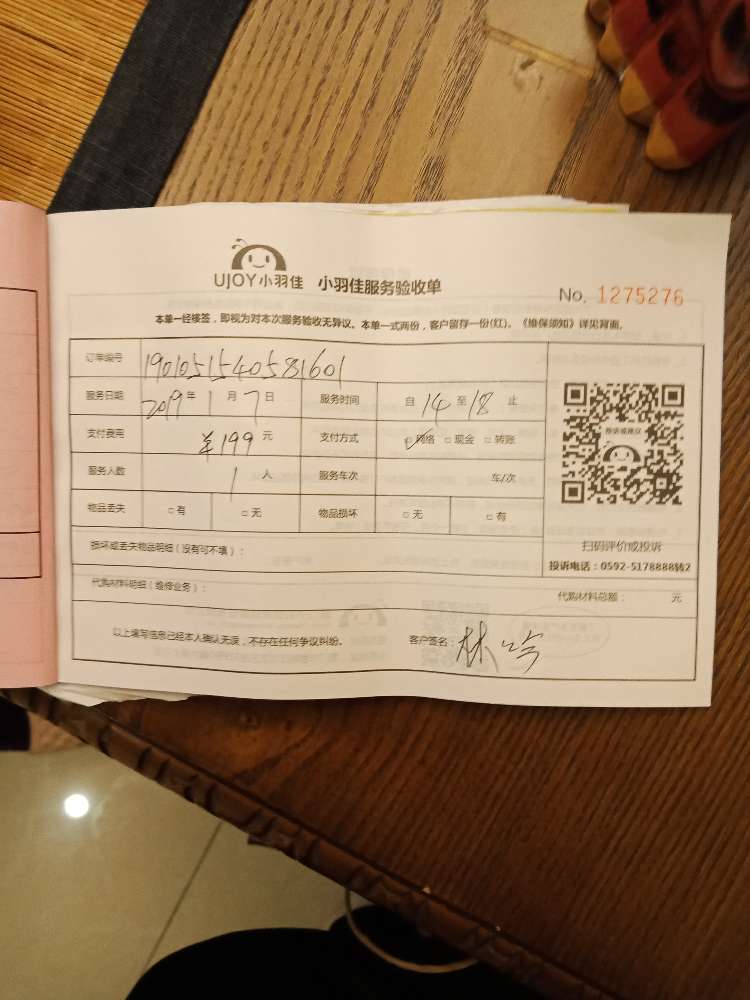 UJOY小羽佳 小羽佳服务验收单
No. 1275276
本单一经接签，即视为对本次服务验收无异议。本单一式两份，客户留存一份(红)。《维保须知》详见背面。
订单编号 1901051540581601
服务日期 2019年1月7日 服务时间 自14至18止
支付费用 ¥199元 支付方式 ☑网络 □现金 □转账
服务人数 1人 服务车次 车/次
物品丢失 □有 □无 物品损坏 □无 □有
投诉或建议
扫码评价或投诉
投诉电话：0592-5178888转2
损坏或丢失物品明细（没有可不填）：
代购材料明细（维修业务）： 代购材料总额： 元
以上填写信息已经本人确认无误，不存在任何争议纠纷。 客户签名：林